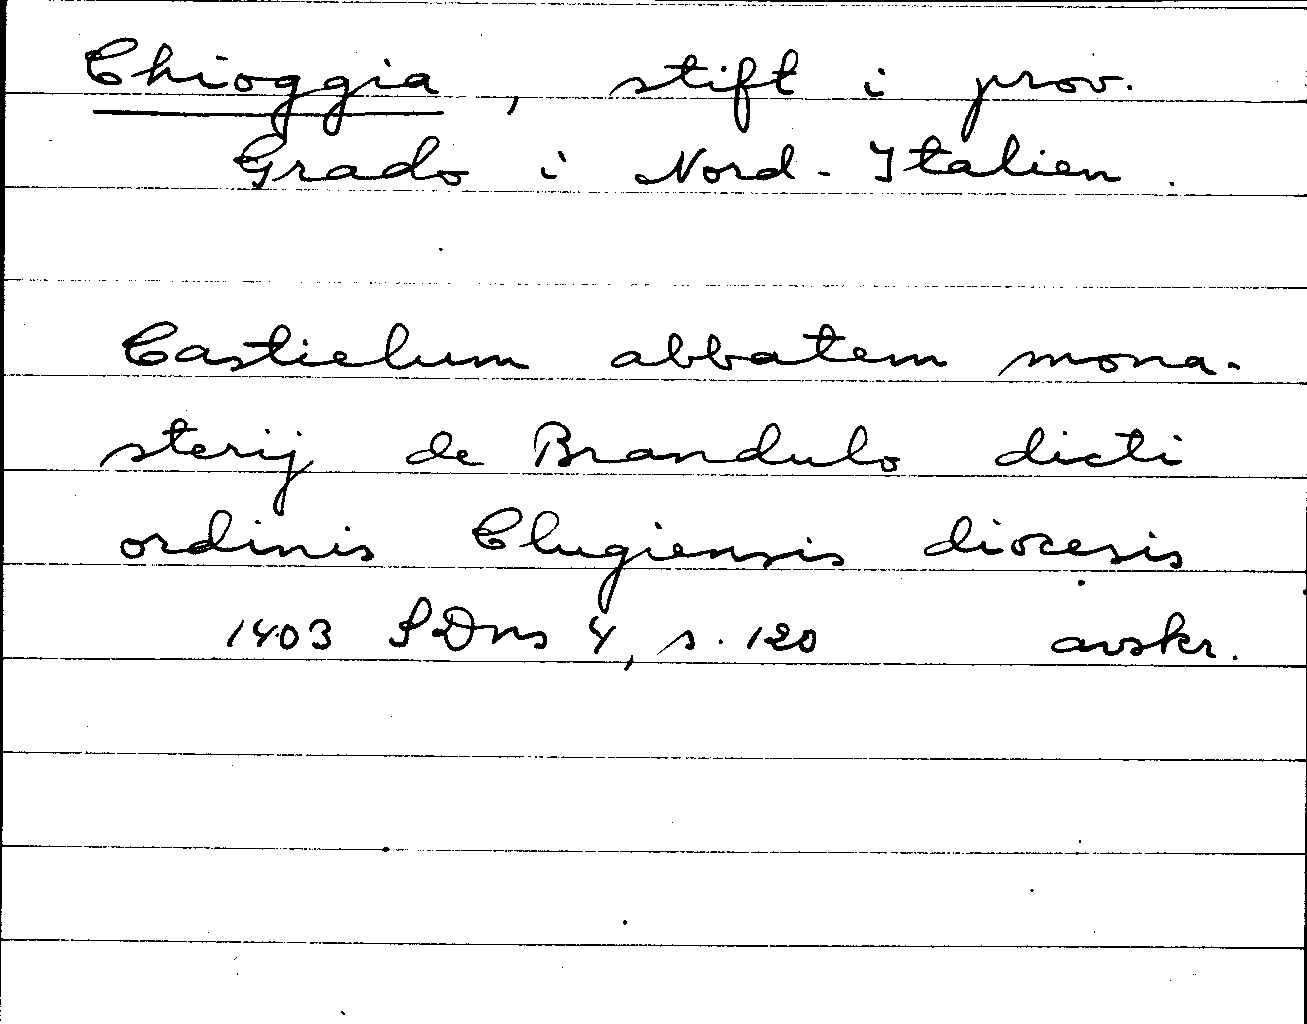 Chioggia, stift i prov.
Grado i Nord-Italien.
Castielum abbatem mona-
sterij de Brandulo dicti
ordinis Clugiensis diocesis
1403 SDns 4, s. 120 avskr.